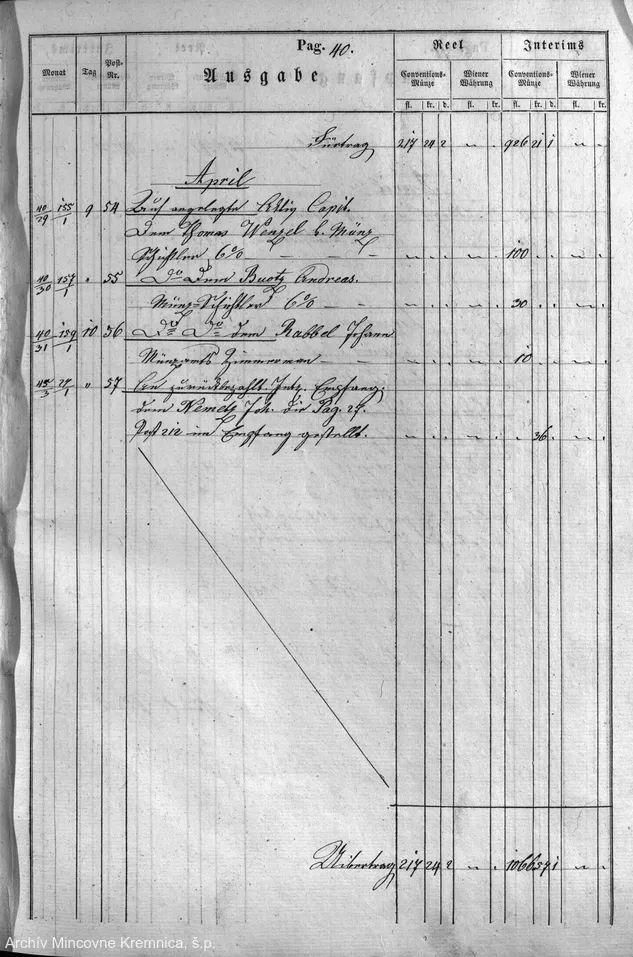 Pag. 40.
Reel Interims
Monat Tag Post-Nr. Ausgabe Conventions-Münze Wiener Währung Conventions-Münze Wiener Währung
fl. kr. d. fl. kr. fl. kr. d. fl. kr.
Fürtrag 217 24 2 " " 926 21 1 " "
April
40/29 155/1 9 54 Auf angelegte Aktiv Capit.
Dem Thomas Wenzel k. Münz
Schichtler 6% - - - - " " " " " 100 " " " "
40/30 157/1 " 55 Do Dem Buotz Andreas.
Münz-Schichtler 6% - - " " " " " 30 " " " "
40/31 159/1 10 56 Do Do dem Rabbel Johann
Münzamts Zimmerman - - " " " " " 10 " " " "
27/1 " 57 An zurückbezahlt. Intz. Empfang.
dem Nemetz Joh. die Pag. 27.
Post 212 im Empfang gestellt. " " " " " " 36 " " "
Uibertrag 217 24 2 " " 1066 57 1 " "
Archív Mincovne Kremnica, š.p.